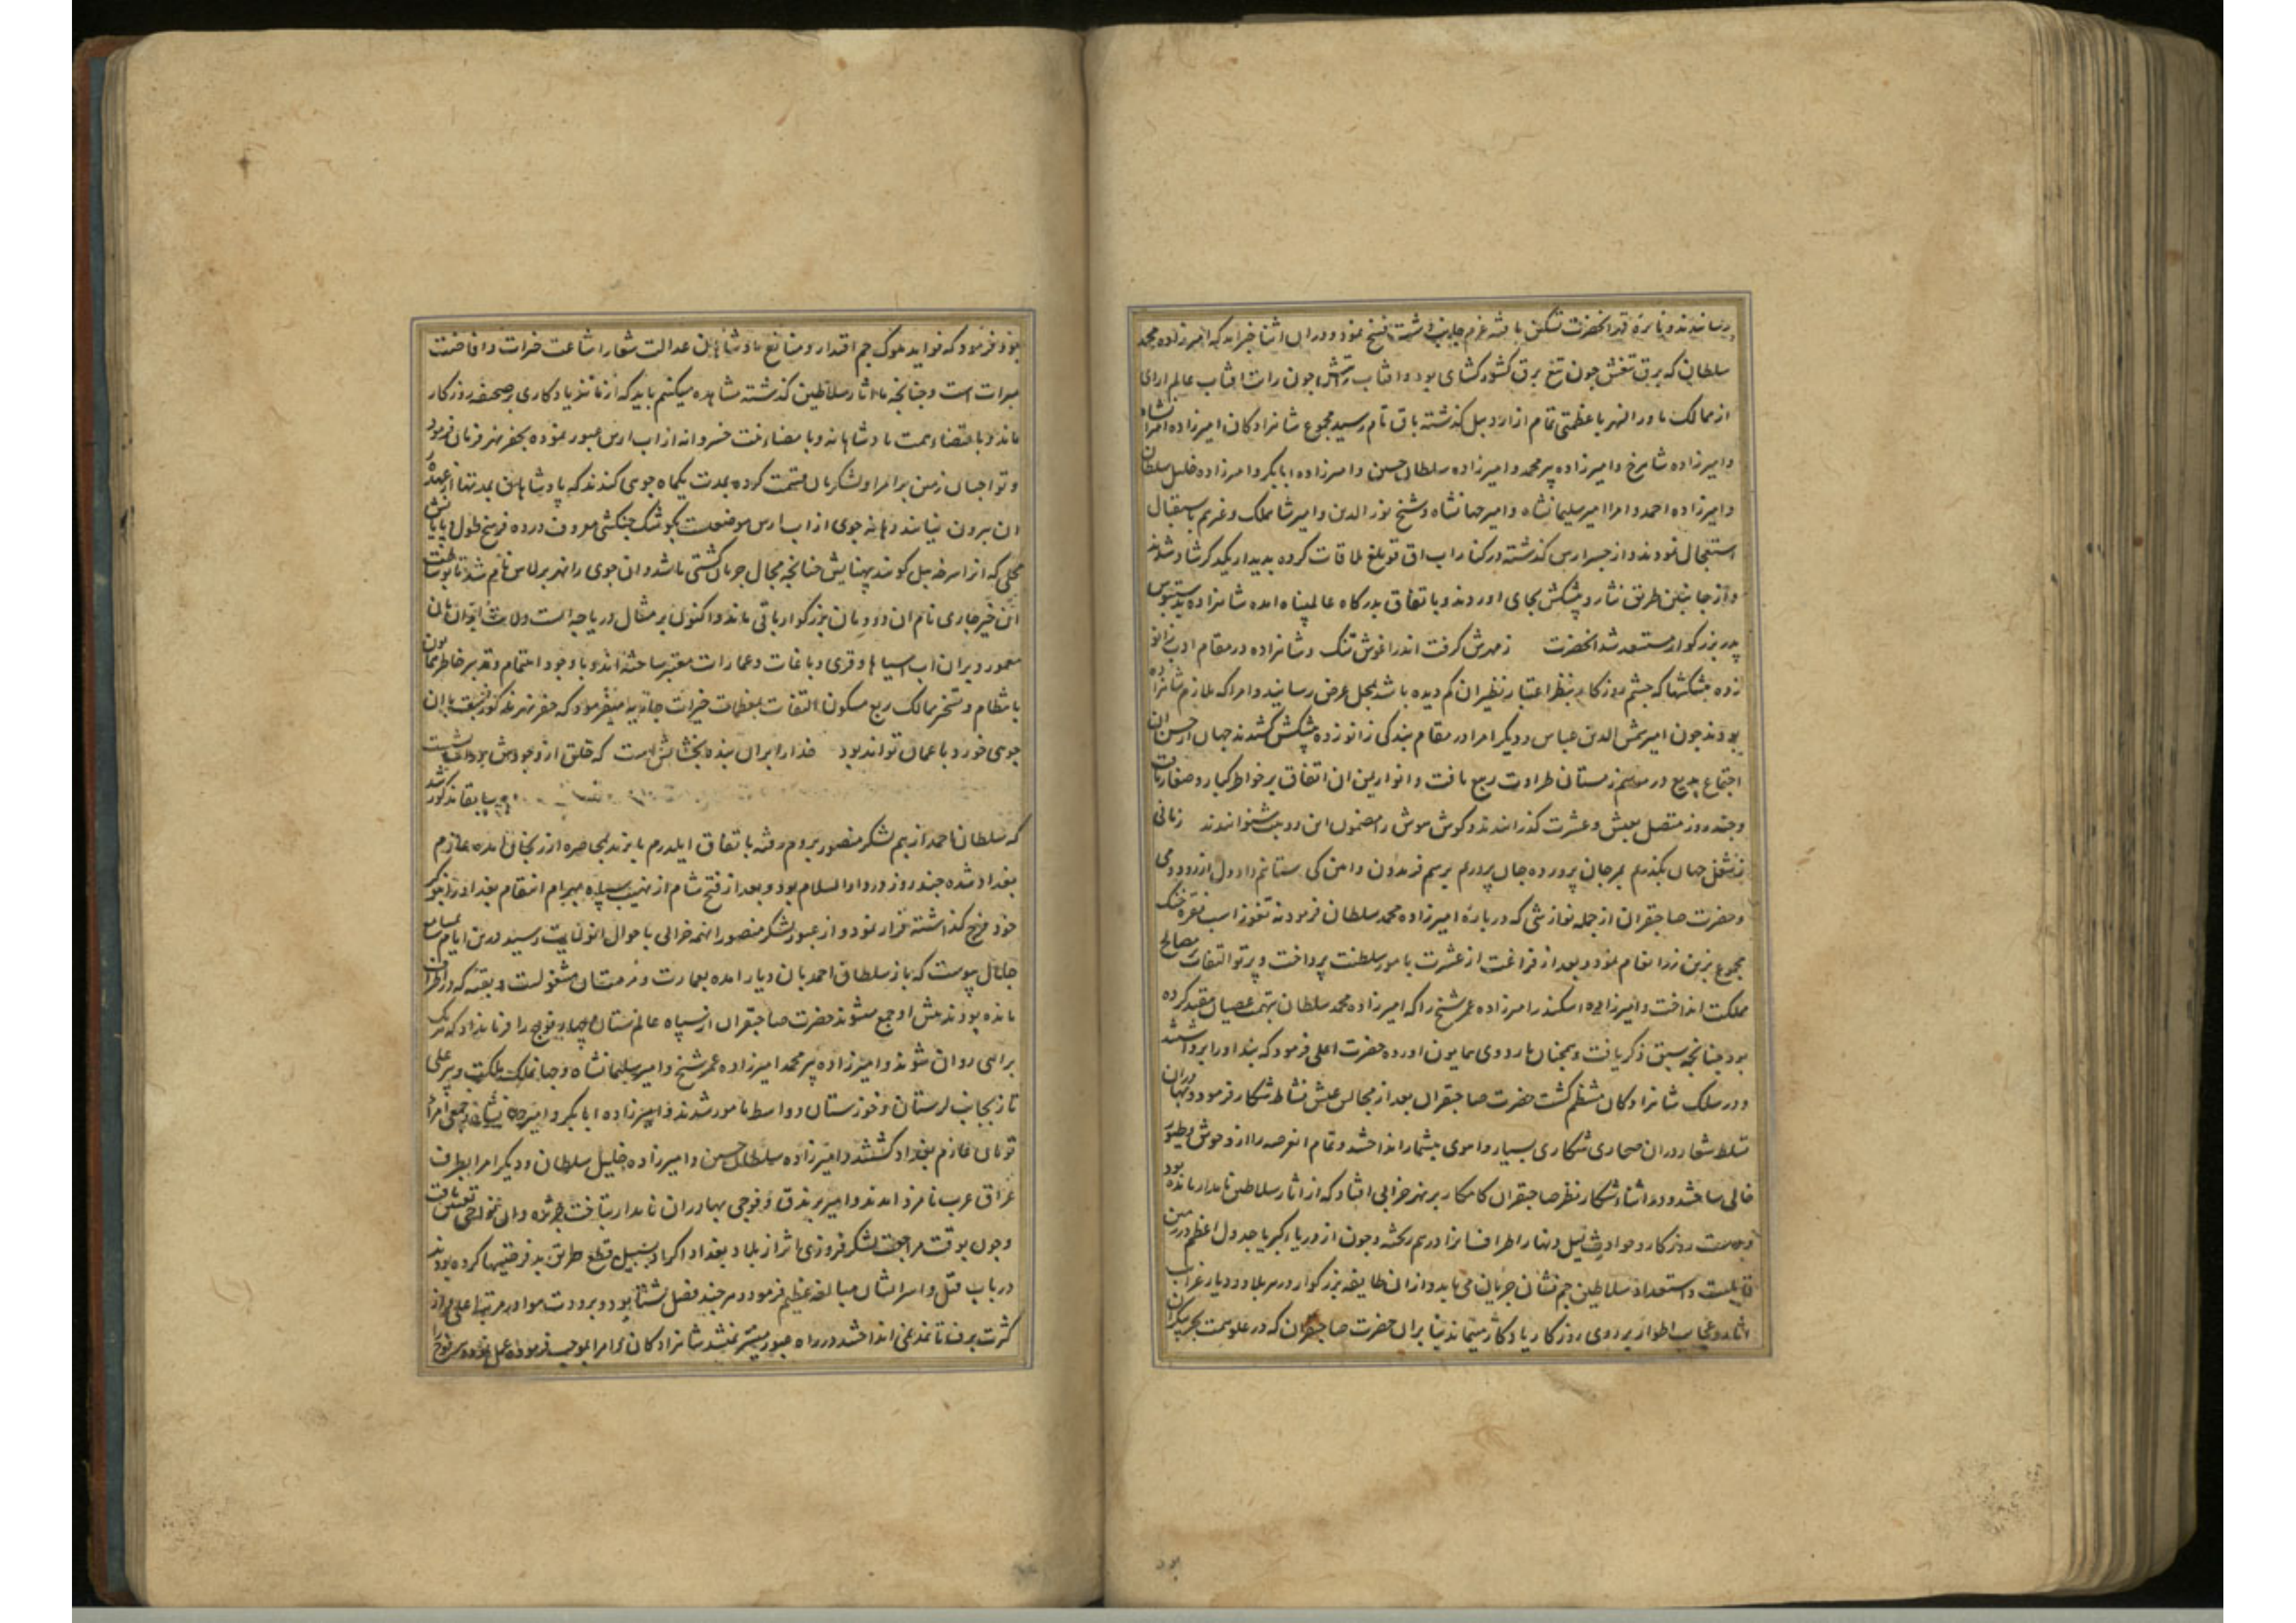 رسانیدند و نایره قهر انحضرت تسکین یافته عزم جانب دشت فسخ نمود و دران اثنا خبر امد که امیرزاده محمد
سلطان که برق تیغش چون تیغ برق کشورکشای بود و افتاب چون رایت افتاب عالم ارای
از ممالک ماورا النهر با عظمتی تمام از اردبیل کذشته باق تام رسید مجموع شاهزادکان امیرزاده امیرانشاه
و امیرزاده شاهرخ و امیرزاده پیر محمد و امیرزاده سلطان حسین و امیرزاده ابابکر و امیرزاده خلیل سلطان
و امیرزاده احمد و امرا امیر سلیمانشاه و امیر جهانشاه و شیخ نور الدین و امیر شاهملک و غیرهم باستقبال
استعجال نمودند و از جسر ارس کذشته در کنار اب اق ملاقات کرده بدیدار یکدیکر شاد شدند
و از جانبین طریق نثار و پیشکش بجای اوردند و باتفاق بدرکاه عالمپناه امده شاهزاده بدستبوس
پدر بزرکوار مستسعد شد انحضرت ز مهرش کرفت اندر اغوش تنک و شاهزاده در مقام ادب زانو
زده پیشکشها که چشم روزکار بنظر اعتبار نظیر ان کم دیده باشد بمحل عرض رسانید و امرا که ملازم شاهزاده
بودند چون امیر شمس الدین عباس و دیکر امرا در مقام بندکی زانو زده پیشکش کشیدند جهان از حسن ان
اجتماع بدیع در موسم زمستان طراوت ربیع یافت و انوار این اتفاق بر خواطر کبار و صغار تافت
و چند روز متصل بعیش و عشرت کذرانیدند و کوش هوش را مضمون این دو بیت شنوانیدند زمانی
ز شغل جهان بکذرم بمرجان پرورده جان پرورم برسم فریدون و ایین کی ستانم داد دل از رود و می
و حضرت صاحبقران از جمله نوازشی که درباره امیرزاده محمد سلطان فرمود نه تقوز اسب نقره خنک
مجموع بزین زر انعام نمود و بعد از فراغت از عشرت بامور سلطنت پرداخت و پرتو التفات بمصالح
مملکت انداخت و امیرزاده اسکندر امیرزاده عمر شیخ را که امیرزاده محمد سلطان بتهمت عصیان مقید کرده
بود چنانچه سبق ذکر یافت و همچنان باردوی همایون اورده حضرت اعلی فرمود که بند او را برداشتند
و در سلک شاهزادکان منتظم کشت حضرت صاحبقران بعد از مجالس عیش نشاط شکار فرمود و بهادران
تسلط شعار دران صحاری شکاری بسیار و اهوی بیشمار انداختند و تمام انعرصه را از وحوش و طیور
خالی ساختند و در اثناء شکار نظر صاحبقران کامکار بر نهر خرابی افتاد که از اثار سلاطین نامدار مانده بود
و بدست روزکار و حوادث لیل و نهار اطراف انرا درهم ریخته و چون از دریاء اکبر یا جدول اعظم در زمین
قابلیت و استعداد سلاطین جم نشان جریان می یابد و از ان طایفه بزرکوار در هر بلاد و دیار غرایب
اثار و عجایب اطوار بر روی روزکار یادکار میماند بنابران حضرت صاحبقران که در علو همت بحر بیکران
بود
بود فرمود که فواید ملوک جم اقتدار و منافع پادشاهان عدالت شعار اشاعت خیرات و افاضت
مبرات است و چنانچه ما اثار سلاطین کذشته مشاهده میکنیم باید که از ما نیز یادکاری بر صحیفه روزکار
ماند و باقتضاء همت پادشاهانه و بامضاء نیت خسروانه از اب ارس عبور نموده بحفر نهر فرمان فرمود
و تواجیان زمین بر امرا و لشکریان قسمت کرده بمدت یکماه جوی کندند که پادشاهان بمدتها از عهده
ان بیرون نیایند دهانه جوی از اب ارس موضعیست بکوشک چنکشی معروف و در ده فرسخ طول پایانش
محلی که انرا سرخه بیل کویند پهنایش چنانچه مجال جریان کشتی باشد و ان جوی را نهر برلاس نام شد تا بوساطت
این خیر جاری نام ان دودمان بزرکوار باقی ماند و اکنون بر مثال دریاچه است و ولایت بدان
معمور و بران اب اسیاها و قری و باغات و عمارات معتبر ساخته اند و با وجود اهتمام و تدبیر خاطر همایون
بانتظام و تسخیر ممالک ربع مسکون التفات بمعظمات خیرات جاریه میفرمود که حفر نهر مذکور نسبت با ان
جوی خورد با عمان تواند بود خدا را بران بنده بخشایش است که خلق از وجودش در اسایشست
سابقا مذکور شد
که سلطان احمد از بیم لشکر منصور بروم رفته باتفاق ایلدرم بایزید بمحاصره ارزنجان امده عازم
بغداد شده چند روز در دار السلام بود و بعد از فتح شام از نهیب سپاه بهرام انتقام بغداد را بنوکر
خود فرخ کذاشته فرار نمود و از عبور لشکر منصور انهمه خرابی باحوال انولایت رسید درین ایام بمسامع
جلال پیوست که باز سلطان احمد بان دیار امده بعمارت و مرمت ان مشغولست و بقیه که در اطراف
مانده بودند پیش او جمع میشوند حضرت صاحبقران از سپاه عالم ستان چهار فوج را فرمانداد که هریک
براهی روان شوند و امیرزاده پیر محمد امیرزاده عمر شیخ و امیر سلیمانشاه و پیر علی
تاز بجانب لرستان و خوزستان و واسط مامور شدند و امیرزاده ابابکر و امیر جهانشاه و جمعی امراء
تومان عازم بغداد کشتند و امیرزاده سلطان حسین و امیرزاده خلیل سلطان و دیکر امرا بطرف
عراق عرب نامزد امدند و امیر برندق و فوجی بهادران نامدار بتاخت
و چون بوقت مراجعت لشکر فیروزی اثر از بلاد بغداد اکراد بسبیل قطع طریق بدفرصتیها کرده بودند
در باب قتل و اسر ایشان مبالغه عظیم فرمود و هرچند فصل شتا بود و برودت هوا در مرتبه اعلی و از
کثرت برف تا نمد نمی انداختند در راه عبور میسر نمیشد شاهزادکان و امرا بموجب فرموده عمل نمودند